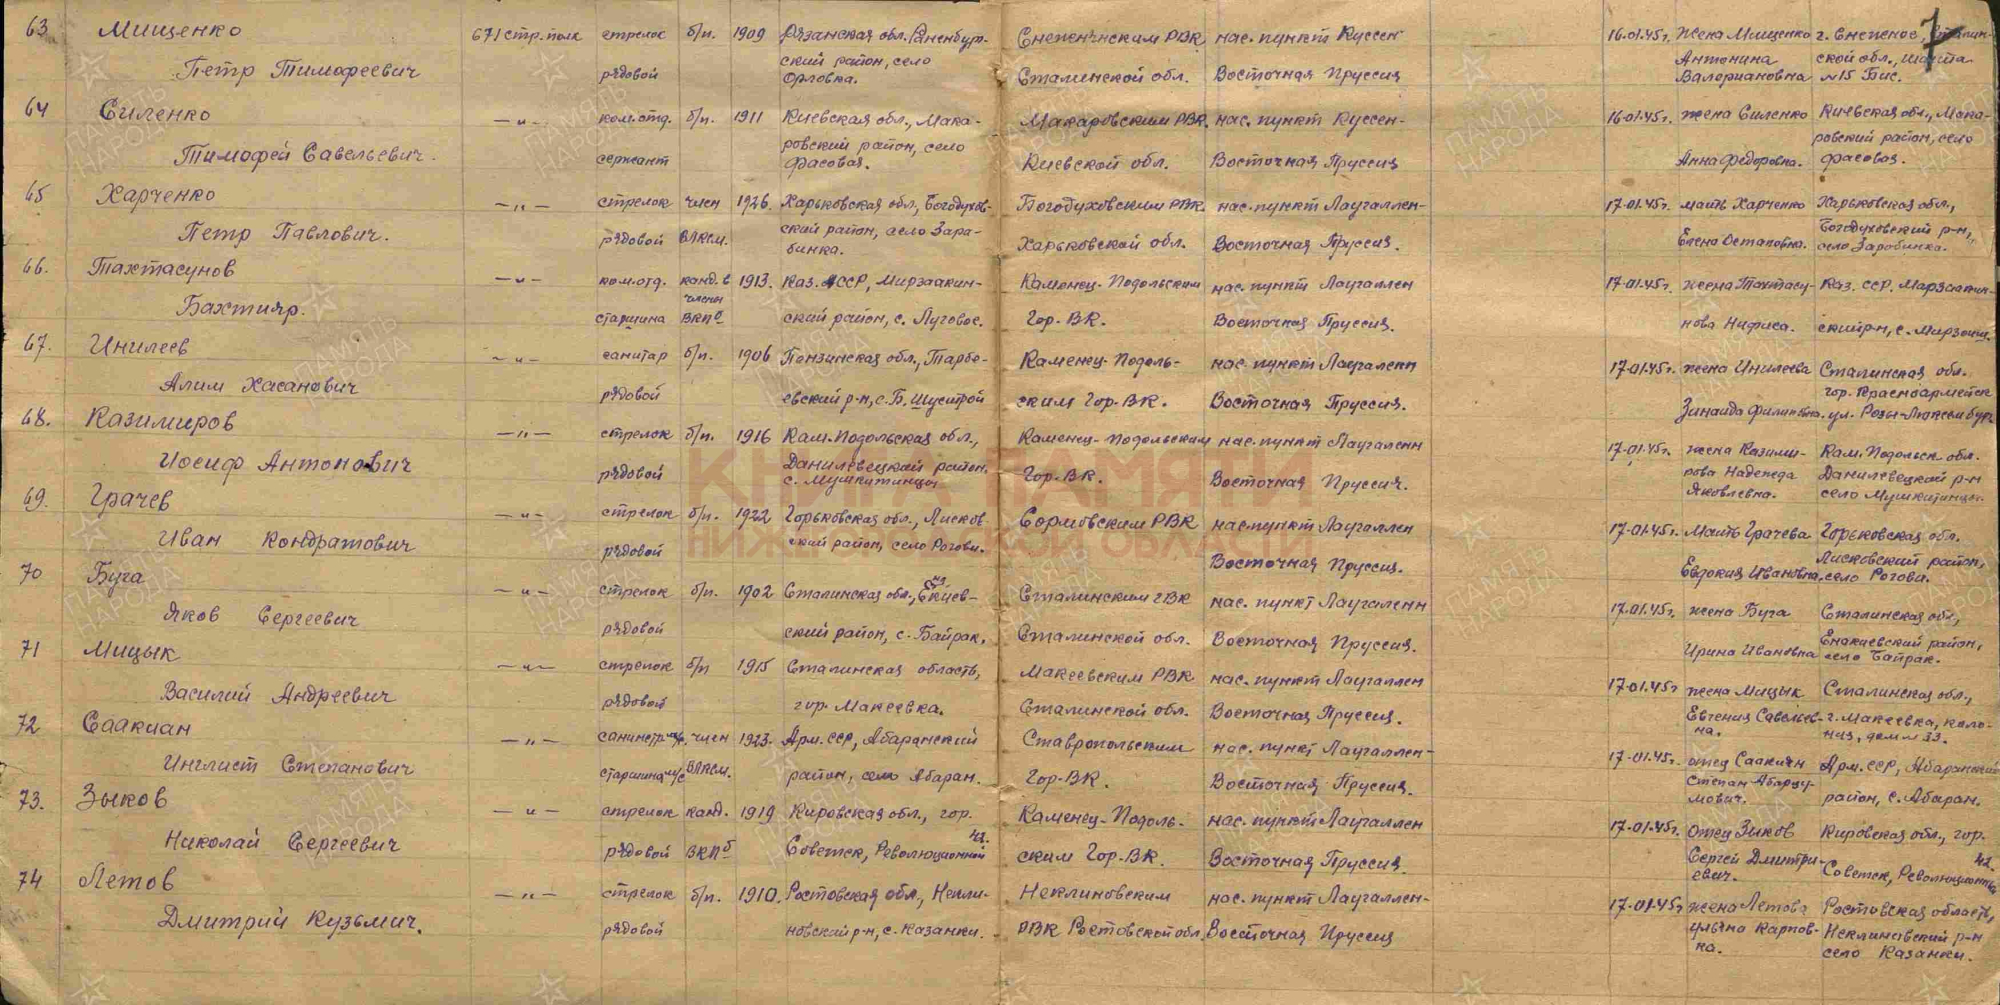 7
63 Мищенко 671 стр. полк стрелок б/п. 1909 Рязанская обл. Раненбург- Снежнянским РВК нас. пункт Куссен 16.01.45г. жена Мищенко г. Снежное, Сталин-
Петр Тимофеевич рядовой ский район, село Орловка. Сталинской обл. Восточная Пруссия Антонина Валериановна ской обл., шахта №15 Бис.
64 Силенко —"— ком.отд. б/п. 1911 Киевская обл., Мака- Макаровским РВК. нас. пункт Куссен- 16.01.45г. жена Силенко Киевская обл., Мака-
Тимофей Савельевич. сержант ровский район, село Фасовая. Киевской обл. Восточная Пруссия Анна Федоровна. ровский район, село Фасовая.
65 Харченко —"— стрелок член 1926. Харьковская обл., Богодухов- Богодуховским РВК нас. пункт Лаугаллен- 17.01.45г. мать Харченко Харьковская обл.,
Петр Павлович. рядовой ВЛКСМ. ский район, село Зара-бинка. Харьковской обл. Восточная Пруссия. Елена Остаповна. Богодуховский р-н, село Заробинка.
66. Тахтасунов —"— ком.отд. канд. в 1913. Каз. ССР, Мирзаакин- Каменец-Подольским нас. пункт Лаугаллен 17.01.45г. жена Тахтасу- Каз. ССР.
Бахтияр. старшина члены ВКПб ский район, с. Луговое. Гор. ВК. Восточная Пруссия. нова Нафиса. ский р-н, с.
67. Инилеев —"— санитар б/п. 1906 Пензинская обл., Тарбе- Каменец-Подоль- нас. пункт Лаугаленн 17.01.45г. жена Инилеева Сталинская обл.
Алим Хасанович рядовой евский р-н, с. Б. Шустрой ским Гор. ВК. Восточная Пруссия. Зинаида Филиповна. гор. Красноармейск ул. Розы-Люксембург
68. Казимиров —"— стрелок б/п. 1916 Кам. Подольская обл., Каменец-Подольским нас. пункт Лаугаленн 17.01.45г. жена Казими- Кам. Подольск. обл.
Иосиф Антонович рядовой Данилевецкий район. с. Мушкитинцы Гор. ВК. Восточная Пруссия. рова Надежда Яковлевна. Данилевецкий р-н село Мушкитинцы.
69. Грачев —"— стрелок б/п. 1922 Горьковская обл., Лисков- Сормовским РВК нас. пункт Лаугаллен 17.01.45г. Мать Грачева Горьковская обл.
Иван Кондратович рядовой ский район, село Рогови. Восточная Пруссия. Евдокия Ивановна, Лисковский район, село Рогови.
70 Буга —"— стрелок б/п. 1902 Сталинская обл., Енакиев- Сталинским ГВК нас. пункт Лаугаленн 17.01.45г. жена Буга Сталинская обл,
Яков Сергеевич рядовой ский район, с. Байрак. Сталинской обл. Восточная Пруссия. Ирина Ивановна Енакиевский район, село Байрак.
71 Мицык —"— стрелок б/п 1915 Сталинская область, Макеевским РВК нас. пункт Лаугаллен 17.01.45г жена Мицык Сталинская обл.,
Василий Андреевич рядовой гор. Макеевка. Сталинской обл. Восточная Пруссия. Евгения Савельев-на. г. Макеевка, коло-ния, дом № 33.
72 Саакиан —"— санинстр. член 1923. Арм. ССР, Абаранский Ставропольским нас. пункт Лаугаллен- 17.01.45г. отец Саакиян Арм. ССР, Абаранский
Инглист Степанович старшина м/с ВЛКСМ. район, село Абаран. Гор. ВК. Восточная Пруссия. Степан район, с. Абаран.
73. Зыков —"— стрелок канд. 1919 Кировская обл., гор. Каменец-Подоль- нас. пункт Лаугаллен 17.01.45г. отец Зыков Кировская обл., гор.
Николай Сергеевич рядовой ВКПб Советск, Революционной 42. ским Гор. ВК. Восточная Пруссия. Сергей Дмитри-евич. Советск, Революционная 42.
74 Летов —"— стрелок б/п. 1910. Ростовская обл., Некли- Неклиновским нас. пункт Лаугаллен- 17.01.45г жена Летова Ростовская область,
Дмитрий Кузьмич. рядовой новский р-н, с. Казанки. РВК Ростовской обл. Восточная Пруссия Ульяна Карпов-ка. Неклиновский р-н село Казанки.
КНИГА ПАМЯТИ
НИЖЕГОРОДСКОЙ ОБЛАСТИ
ПАМЯТЬ НАРОДА